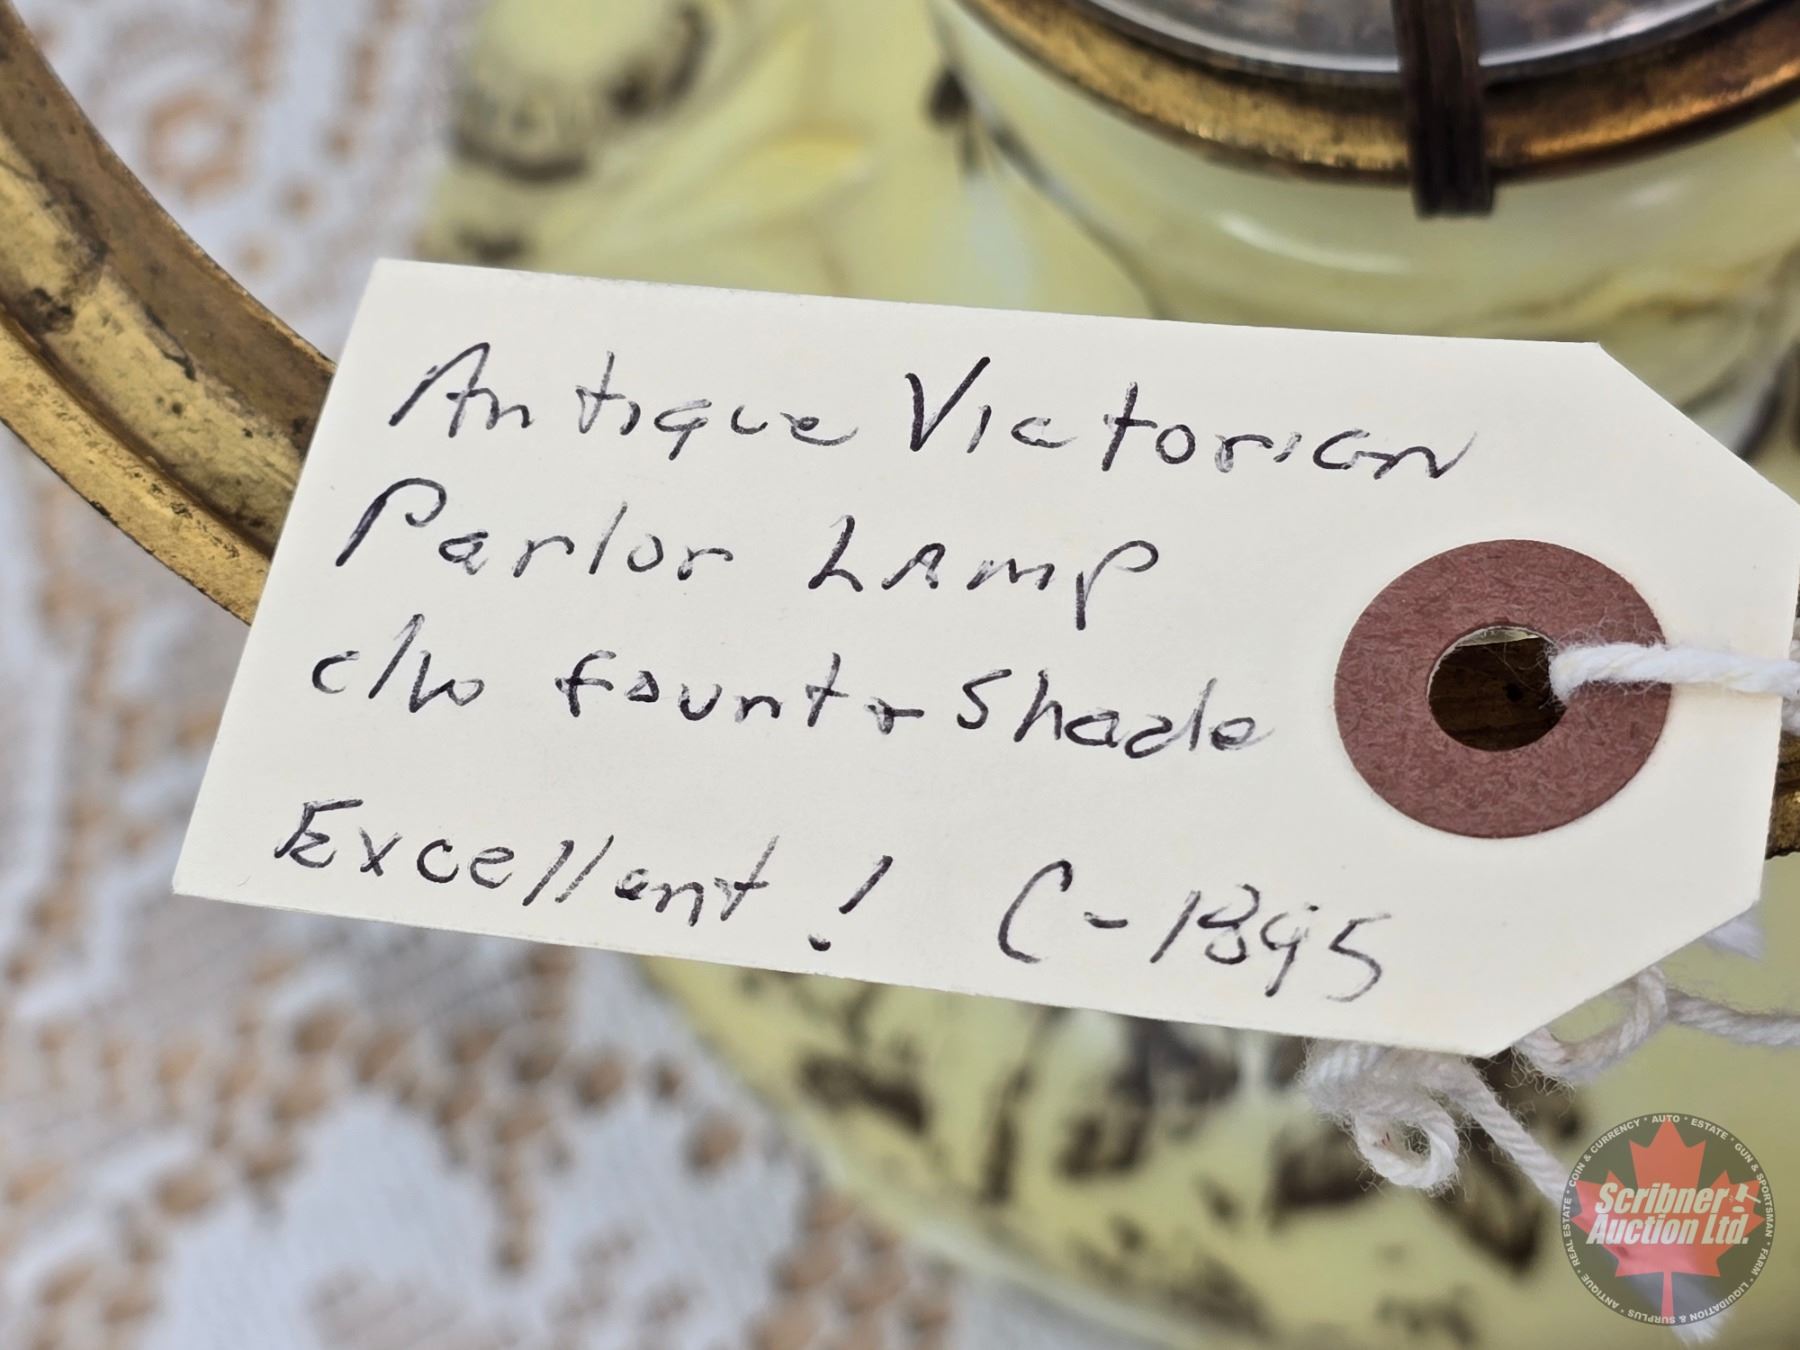 Antique Victorian
Parlor LAmp
c/w fount + Shade
Excellent! C-1895
COIN & CURRENCY • AUTO • ESTATE • GUN & SPORTSMAN • FARM • LIQUIDATION & SURPLUS • ANTIQUE • REAL ESTATE •
Scribner
Auction Ltd.